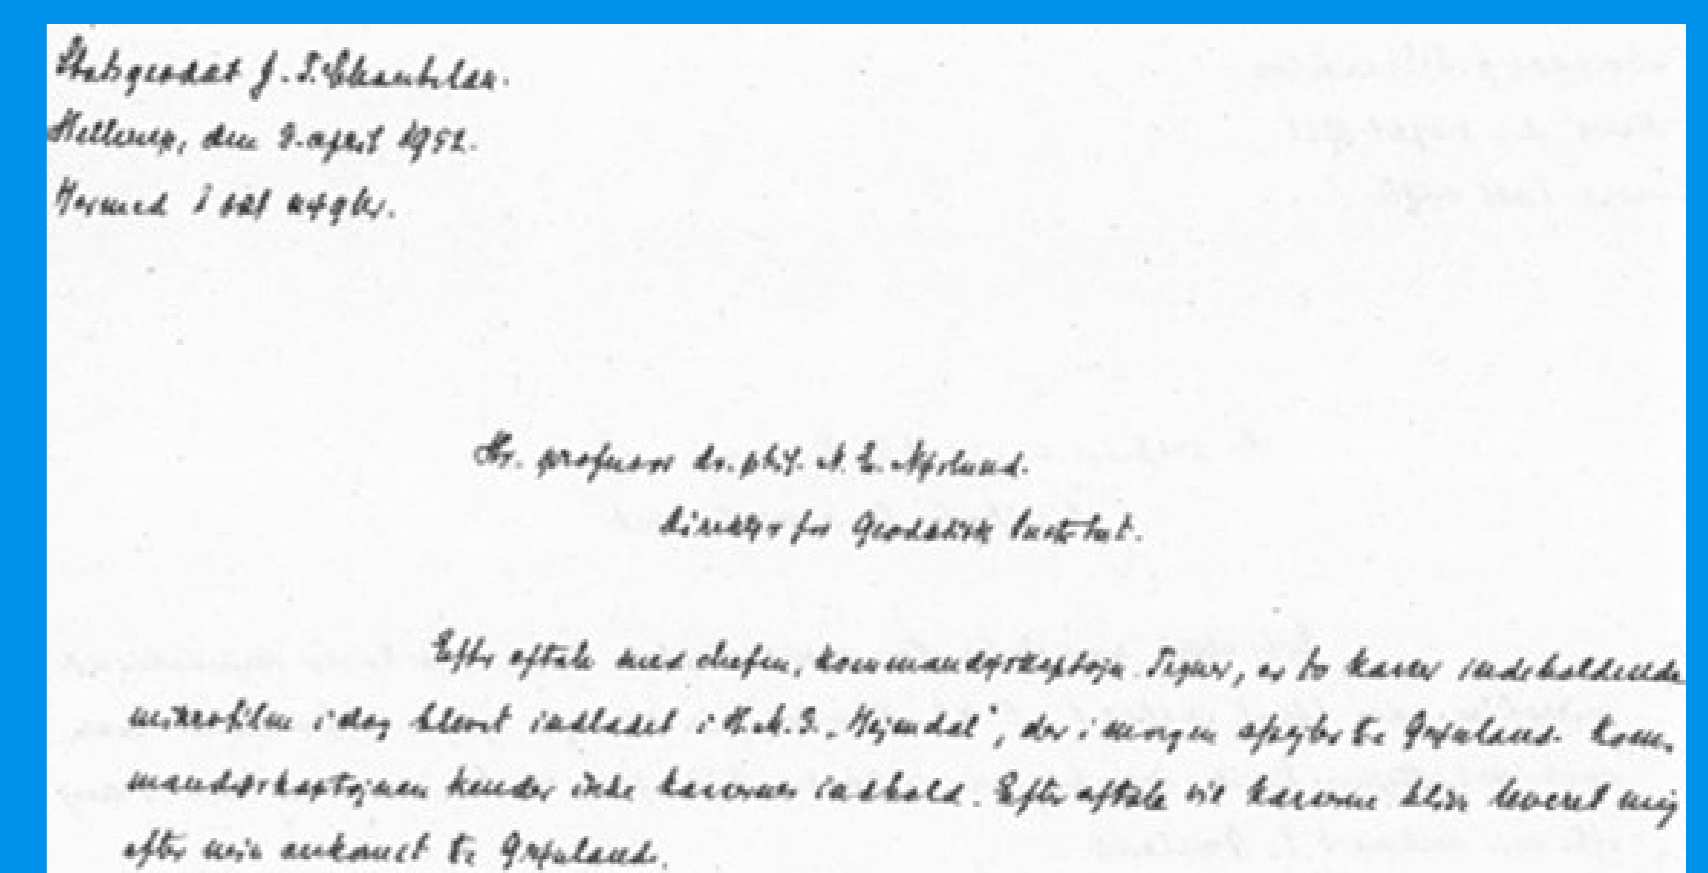 Statsgeodæt J. P. Chantelou.
Hellerup, den 2. april 1952.
Hermed 2 sæt nøgler.
Hr. professor dr. phil. N. E. Nørlund.
Direktør for Geodætisk Institut.
Efter aftale med chefen, kommandørkaptajn, er to kasser indeholdende
mikrofilm i dag blevet indladet i H.M.S. „Hejmdal", der i morgen afsejler til Grønland. Kom-
mandørkaptajnen kender ikke kassernes indhold. Efter aftale vil kasserne blive leveret mig
efter min ankomst til Grønland.